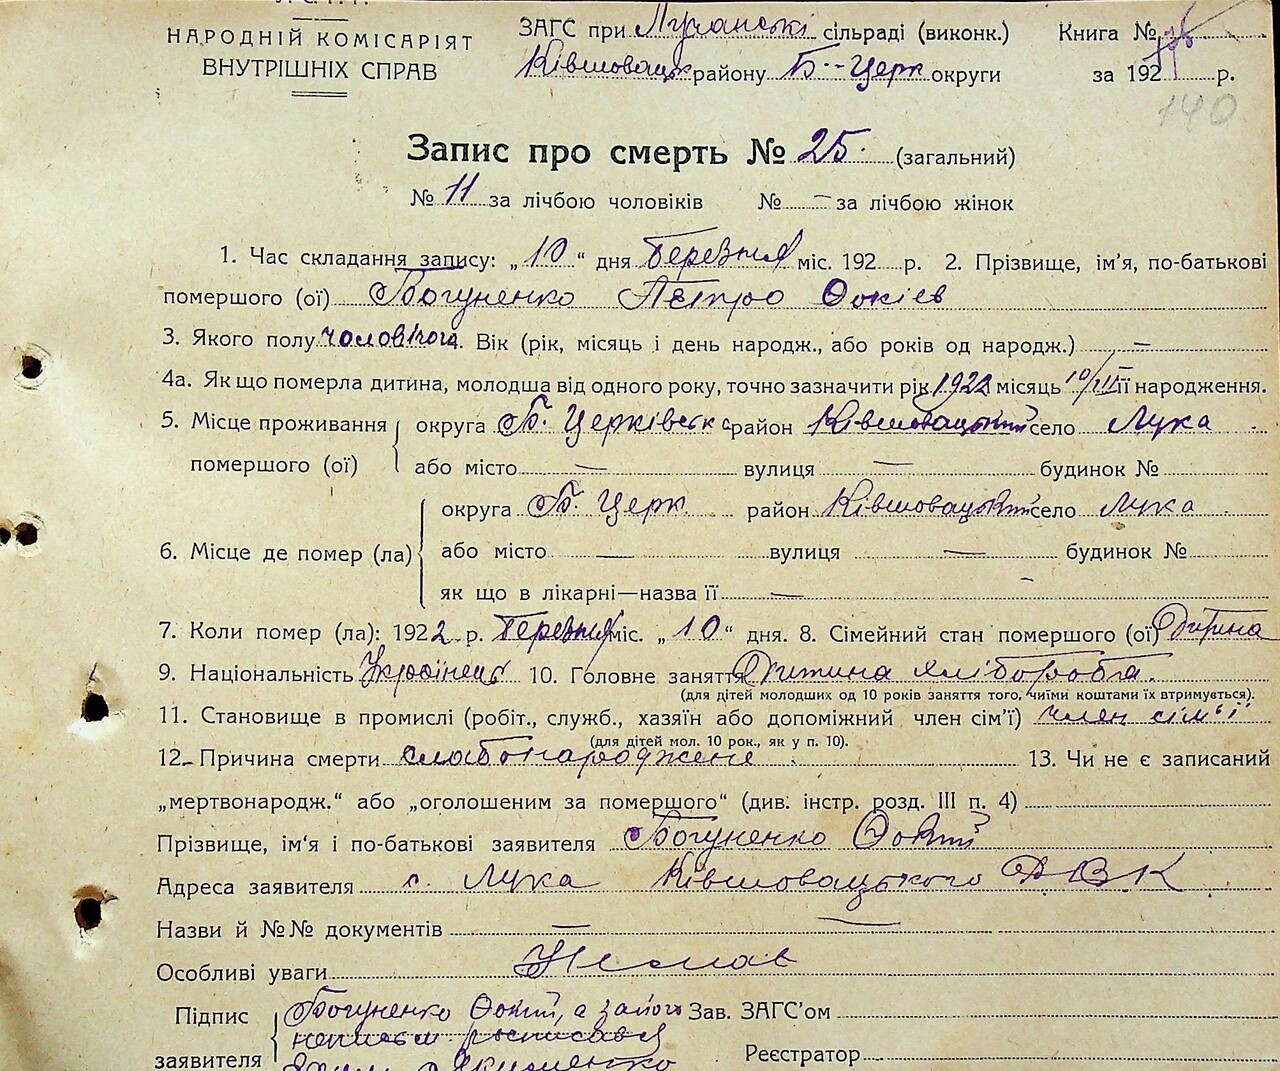 НАРОДНІЙ КОМІСАРІЯТ
ВНУТРІШНІХ СПРАВ
ЗАГС при Лучанські сільраді (виконк.) Книга №
Ківшовацьк району Б-Церк округи за 192 р.
140
Запис про смерть № 25. (загальний)
№ 11 за лічбою чоловіків № — за лічбою жінок
1. Час складання запису: „10“ дня Березня міс. 192 р. 2. Прізвище, ім'я, по-батькові
помершого (ої) Богуненко Петро Фокіев
3. Якого полу чоловічого 4. Вік (рік, місяць і день народж., або років од народж.) —
4а. Як що померла дитина, молодша від одного року, точно зазначити рік 1922 місяць 10/III її народження.
5. Місце проживання помершого (ої) округа Б. Церківська район Ківшовацький село Лука
або місто — вулиця — будинок №
6. Місце де помер (ла) округа Б. Церк. район Ківшовацький село Лука
або місто — вулиця — будинок №
як що в лікарні—назва її —
7. Коли помер (ла): 1922 р. Березня міс. „10“ дня. 8. Сімейний стан помершого (ої) Дитина
9. Національність Українець 10. Головне заняття Дитина хлібороба.
(для дітей молодших од 10 років заняття того, чиїми коштами їх втримується).
11. Становище в промислі (робіт., служб., хазяїн або допоміжний член сім'ї) член сім'ї
(для дітей мол. 10 рок., як у п. 10).
12. Причина смерти слабонароджене 13. Чи не є записаний
„мертвонародж.“ або „оголошеним за помершого“ (див. інстр. розд. III п. 4)
Прізвище, ім'я і по-батькові заявителя Богуненко Фокій
Адреса заявителя с. Лука Ківшовацького РВК
Назви й №№ документів — —
Особливі уваги Немає
Підпис заявителя Богуненко Фокій, а за його Зав. ЗАГС'ом
неписьм росписався
Якименко Реєстратор